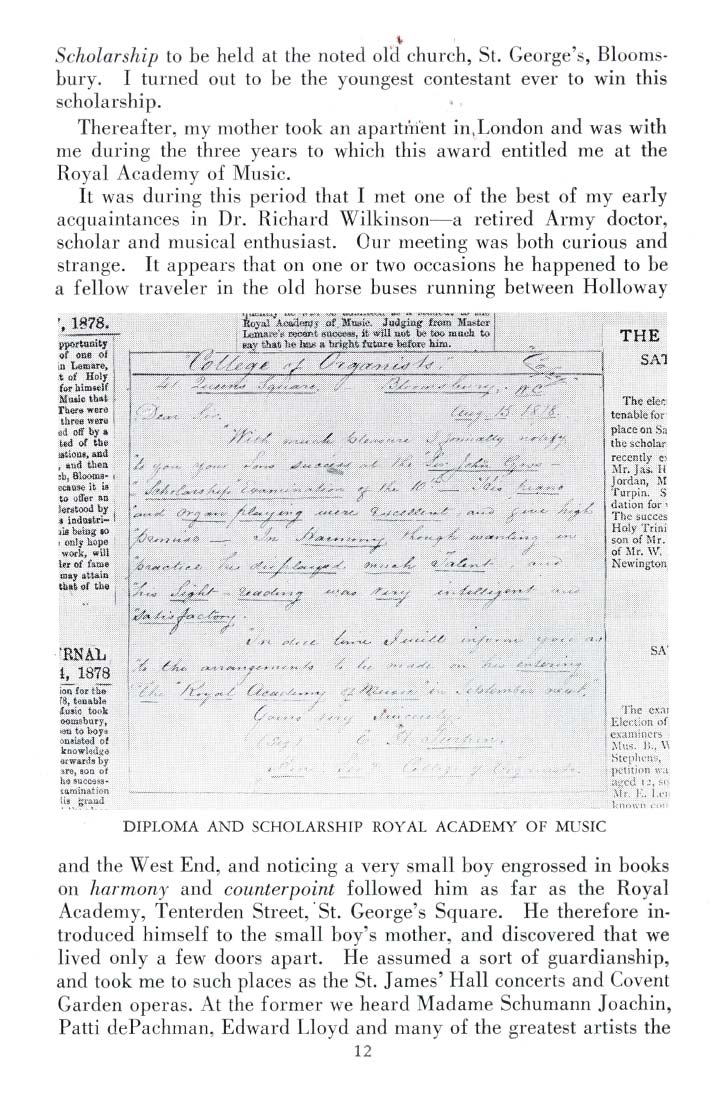 Scholarship to be held at the noted old church, St. George's, Blooms-
bury. I turned out to be the youngest contestant ever to win this
scholarship.
Thereafter, my mother took an apartment in London and was with
me during the three years to which this award entitled me at the
Royal Academy of Music.
It was during this period that I met one of the best of my early
acquaintances in Dr. Richard Wilkinson—a retired Army doctor,
scholar and musical enthusiast. Our meeting was both curious and
strange. It appears that on one or two occasions he happened to be
a fellow traveler in the old horse buses running between Holloway
', 1878.
pportunity
of one of
n Lemare,
t of Holy
for himself
Music that
There were
three were
ed off by a
ted of the
ations, and
, and then
ch, Blooms-
ecause it is
to offer an
derstood by
s industri-
his being so
only hope
work, will
ler of fame
may attain
that of the
RNAL
1, 1878
ion for the
78, tenable
Music took
oomsbury,
en to boys
onsisted of
knowledge
erwards by
are, son of
he success-
xamination
lis grand
Royal Academy of Music. Judging from Master
Lemare's recent success, it will not be too much to
say that he has a bright future before him.
"College of Organists."
41 Queens Square, Bloomsbury, W.C.
Dear Sir, Aug. 15. 1878.
"With much pleasure I formally notify
"to you your Sons success at the "Sir John Goss –
"Scholarship" Examination of the 10th – His piano
"and organ playing were excellent, and give high
"promise – In Harmony though wanting in
"practice he displayed much Talent, and
"his Sight-reading was very intelligent and
"satisfactory.
"In due time I will inform you as
"to the arrangements to be made on his entering
"the "Royal Academy of Music" in September next."
Yours very Sincerely,
(Sig) E. H. Turpin.
"Hon Sec" College of Organists.
THE
SAT
The elec
tenable for
place on Sa
the scholar
recently e
Mr. Jas. H
Jordan, M
Turpin. S
dation for
The succes
Holy Trini
son of Mr.
of Mr. W.
Newington
SA
The exam
Election of
examiners
Mus. B., W
Stephens,
petition wa
aged 12, so
Mr. E. Len
known
DIPLOMA AND SCHOLARSHIP ROYAL ACADEMY OF MUSIC
and the West End, and noticing a very small boy engrossed in books
on harmony and counterpoint followed him as far as the Royal
Academy, Tenterden Street, St. George's Square. He therefore in-
troduced himself to the small boy's mother, and discovered that we
lived only a few doors apart. He assumed a sort of guardianship,
and took me to such places as the St. James' Hall concerts and Covent
Garden operas. At the former we heard Madame Schumann Joachin,
Patti dePachman, Edward Lloyd and many of the greatest artists the
12